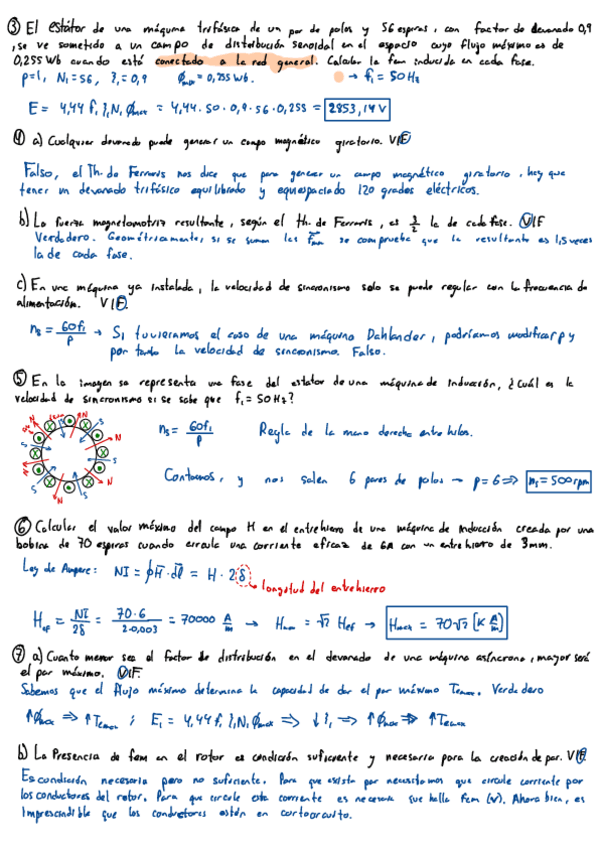 ③ El estátor de una máquina trifásica de un par de polos y 56 espiras, con factor de devanado 0,9
, se ve sometido a un campo de distribución senoidal en el espacio cuyo flujo máximo es de
0,255 Wb cuando está conectado a la red general. Calcular la fem inducida en cada fase.
p=1, N₁=56, ξ₁=0,9 ϕmax = 0,255 Wb. → f₁ = 50 Hz
E = 4,44 f₁ ξ₁ N₁ ϕmax = 4,44 · 50 · 0,9 · 56 · 0,255 = 2853,14 V
④ a) Cualquier devanado puede generar un campo magnético giratorio. V/F
Falso, el Th. de Ferraris nos dice que para generar un campo magnético giratorio, hay que
tener un devanado trifásico equilibrado y equiespaciado 120 grados eléctricos.
b) La fuerza magnetomotriz resultante, según el th. de Ferraris, es 3/2 la de cada fase. V/F
Verdadero. Geométricamente, si se suman las Fmm se comprueba que la resultante es 1,5 veces
la de cada fase.
c) En una máquina ya instalada, la velocidad de sincronismo solo se puede regular con la frecuencia de
alimentación. V/F
ns = 60f₁/p → Si tuvieramos el caso de una máquina Dahlander, podríamos modificar p y
por tanto la velocidad de sincronismo. Falso.
⑤ En la imagen se representa una fase del estator de una máquina de inducción, ¿Cuál es la
velocidad de sincronismo si se sabe que f₁ = 50 Hz?
ns = 60f₁/p Regla de la mano derecha entre hilos.
Contamos, y nos salen 6 pares de polos → p=6 ⇒ n₁ = 500 rpm
N S N S N S N S
⑥ Calcular el valor máximo del campo H en el entrehierro de una máquina de inducción creada por una
bobina de 70 espiras cuando circula una corriente eficaz de 6A con un entrehierro de 3mm.
Ley de Ampere: NI = ∮H̅·dl̅ = H · 2δ
→ longitud del entrehierro
Hef = NI/2δ = 70·6/2·0,003 = 70000 A/m → Hmax = √2 Hef → Hmax = 70√2 [K A/m]
⑦ a) Cuanto menor sea el factor de distribución en el devanado de una máquina asíncrona, mayor será
el par máximo. V/F.
Sabemos que el flujo máximo determina la capacidad de dar el par máximo Temax. Verdadero
↑ϕmax ⇒ ↑Temax ; E₁ = 4,44 f₁ ξ₁ N₁ ϕmax ⇒ ↓ξ₁ → ↑ϕmax ⇒ ↑Temax
b) La Presencia de fem en el rotor es condición suficiente y necesaria para la creación de par. V/F
Es condición necesaria pero no suficiente. Para que exista par necesitamos que circule corriente por
los conductores del rotor. Para que circule esta corriente es necesario que halla fem (V). Ahora bien, es
imprescindible que los conductores estén en cortocircuito.